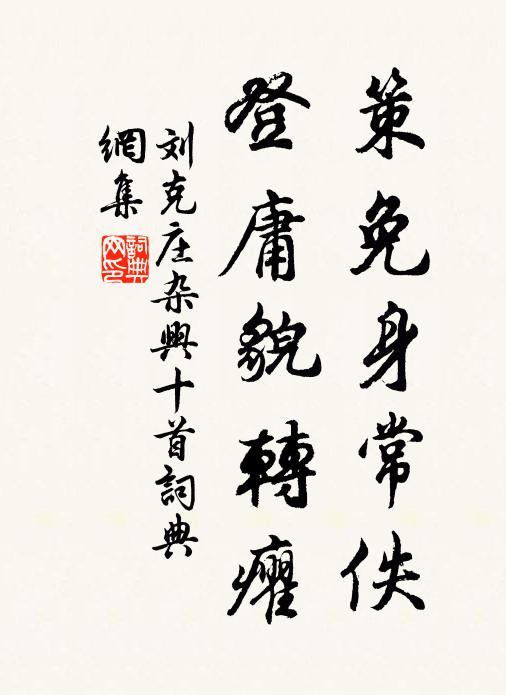 策免身常佚
登庸貌轉癯
刘克庄杂興十首詞典
網集
詞典网印